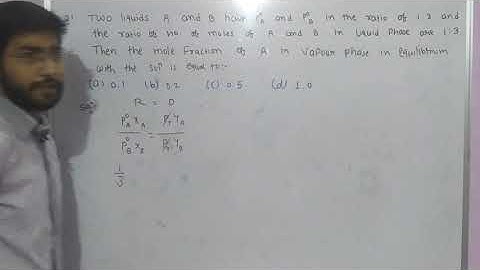 TWO liquids A and B have P°A and P°B in the ratio of 1:3 and
the ratio of no of moles of A and B in liquid phase are 1:3
Then the mole fraction of A in vapour phase in equilibrium
with the solⁿ is equal to:-
(a) 0.1 (b) 0.2 (c) 0.5 (d) 1.0
Solⁿ R = D
P°A xA / P°B xB = PT YA / PT YB
1/3